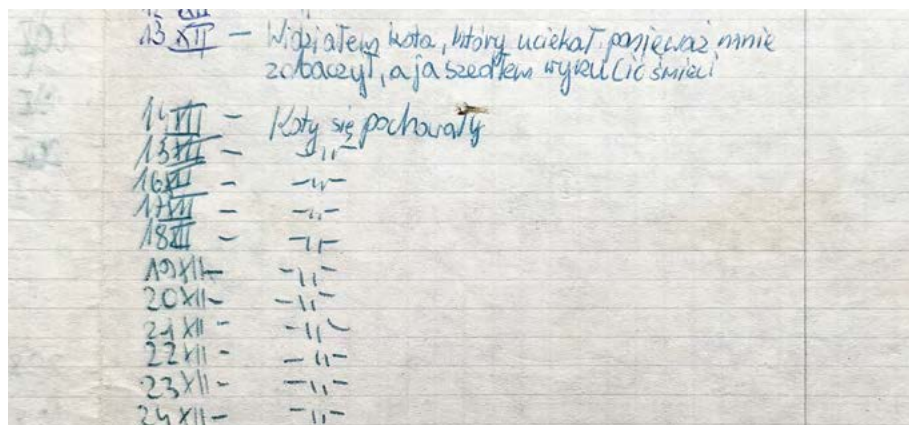 12 XII
13 XII – Widziałem kota, który uciekał ponieważ mnie
zobaczył, a ja szedłem wyrzucić śmieci
14 XII – Koty się pochowały
15 XII – –„–
16 XII – –„–
17 XII – –„–
18 XII – –„–
19 XII – –„–
20 XII – –„–
21 XII – –„–
22 XII – –„–
23 XII – –„–
24 XII – –„–